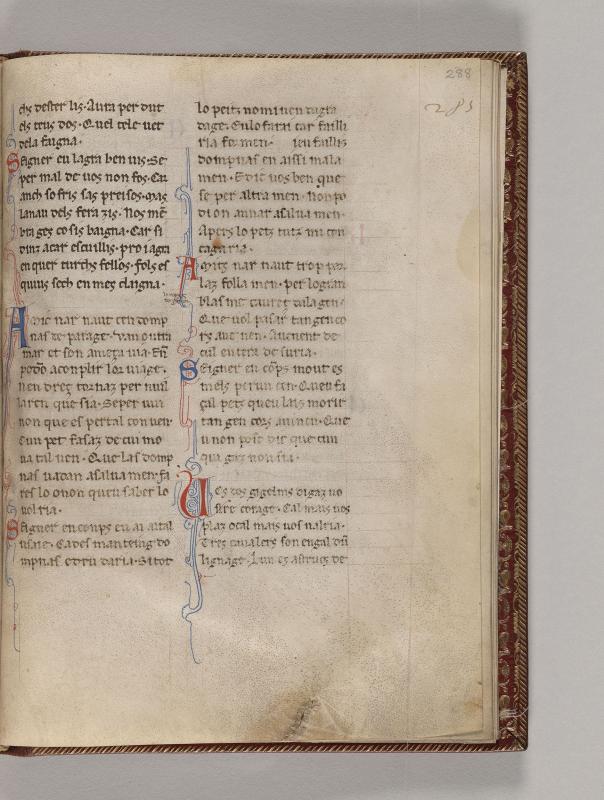 288
285
els dester lis. Aura per dut
els teus dos. Quel cele uet
dela faigna.
Seigner eu lagra ben uis. Se
per mal de uos non fos. Cu
anch sofris sas preisos. mas
lanau dels fera zis. Nos mē
bra ges co sis baigna. Car si
dinz acar escuillis. pro iagra
enquer turchs fellos. fols es
quius sech en mes claigna.
Amic nar naut cen domp
nas de parage. Van outra
mar et son
podō acomplir lor uiage.
nen dreg tornar per nuil
larch que sia. Se per un
non que es per tal conuen
Cun pet fasaz de cui mo
ua tal uen. Que las domp
nas uadan asalua men. fa
res lo o non queu saber lo
uolria.
Seigner en coups eu ai aital
usage. Cades manteing do
mpnas et dru daria. Si tot
lo petz nomi uen dagra
dage. Eu lo farai car failli
ria fer men. ieu faillis
dompnas en aissi mala
men. E dic uos ben que
se per altra men. Non po
dion annar asalua men.
Apers lo petz
cagaria.
Amics nar naut trop par
laz folla men. per logran
blasme
Que uol pasar tan gen co
rs aue nen. Auenent de
cul entera de suria.
Seigner en cōps mout es
mels per un cen. Queu fa
çal petz queu lais morir
tan gen cors auinen. Que
u non posc dir que cun
qua gaz non sia.
Ves cos gigelms digaz uo
stre corage. Cal mais uos
plaz o cal mais uos ualria.
Tres caualers son engal dū
lignage. Lun es astrucs de